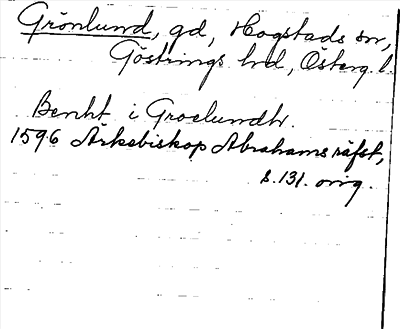 Grönlund, gd, Hogstads sn,
Göstrings hd, Österg. l.
Benht i Groelundh.
1596 Ärkebiskop Abrahams räfst,
s. 131. orig.